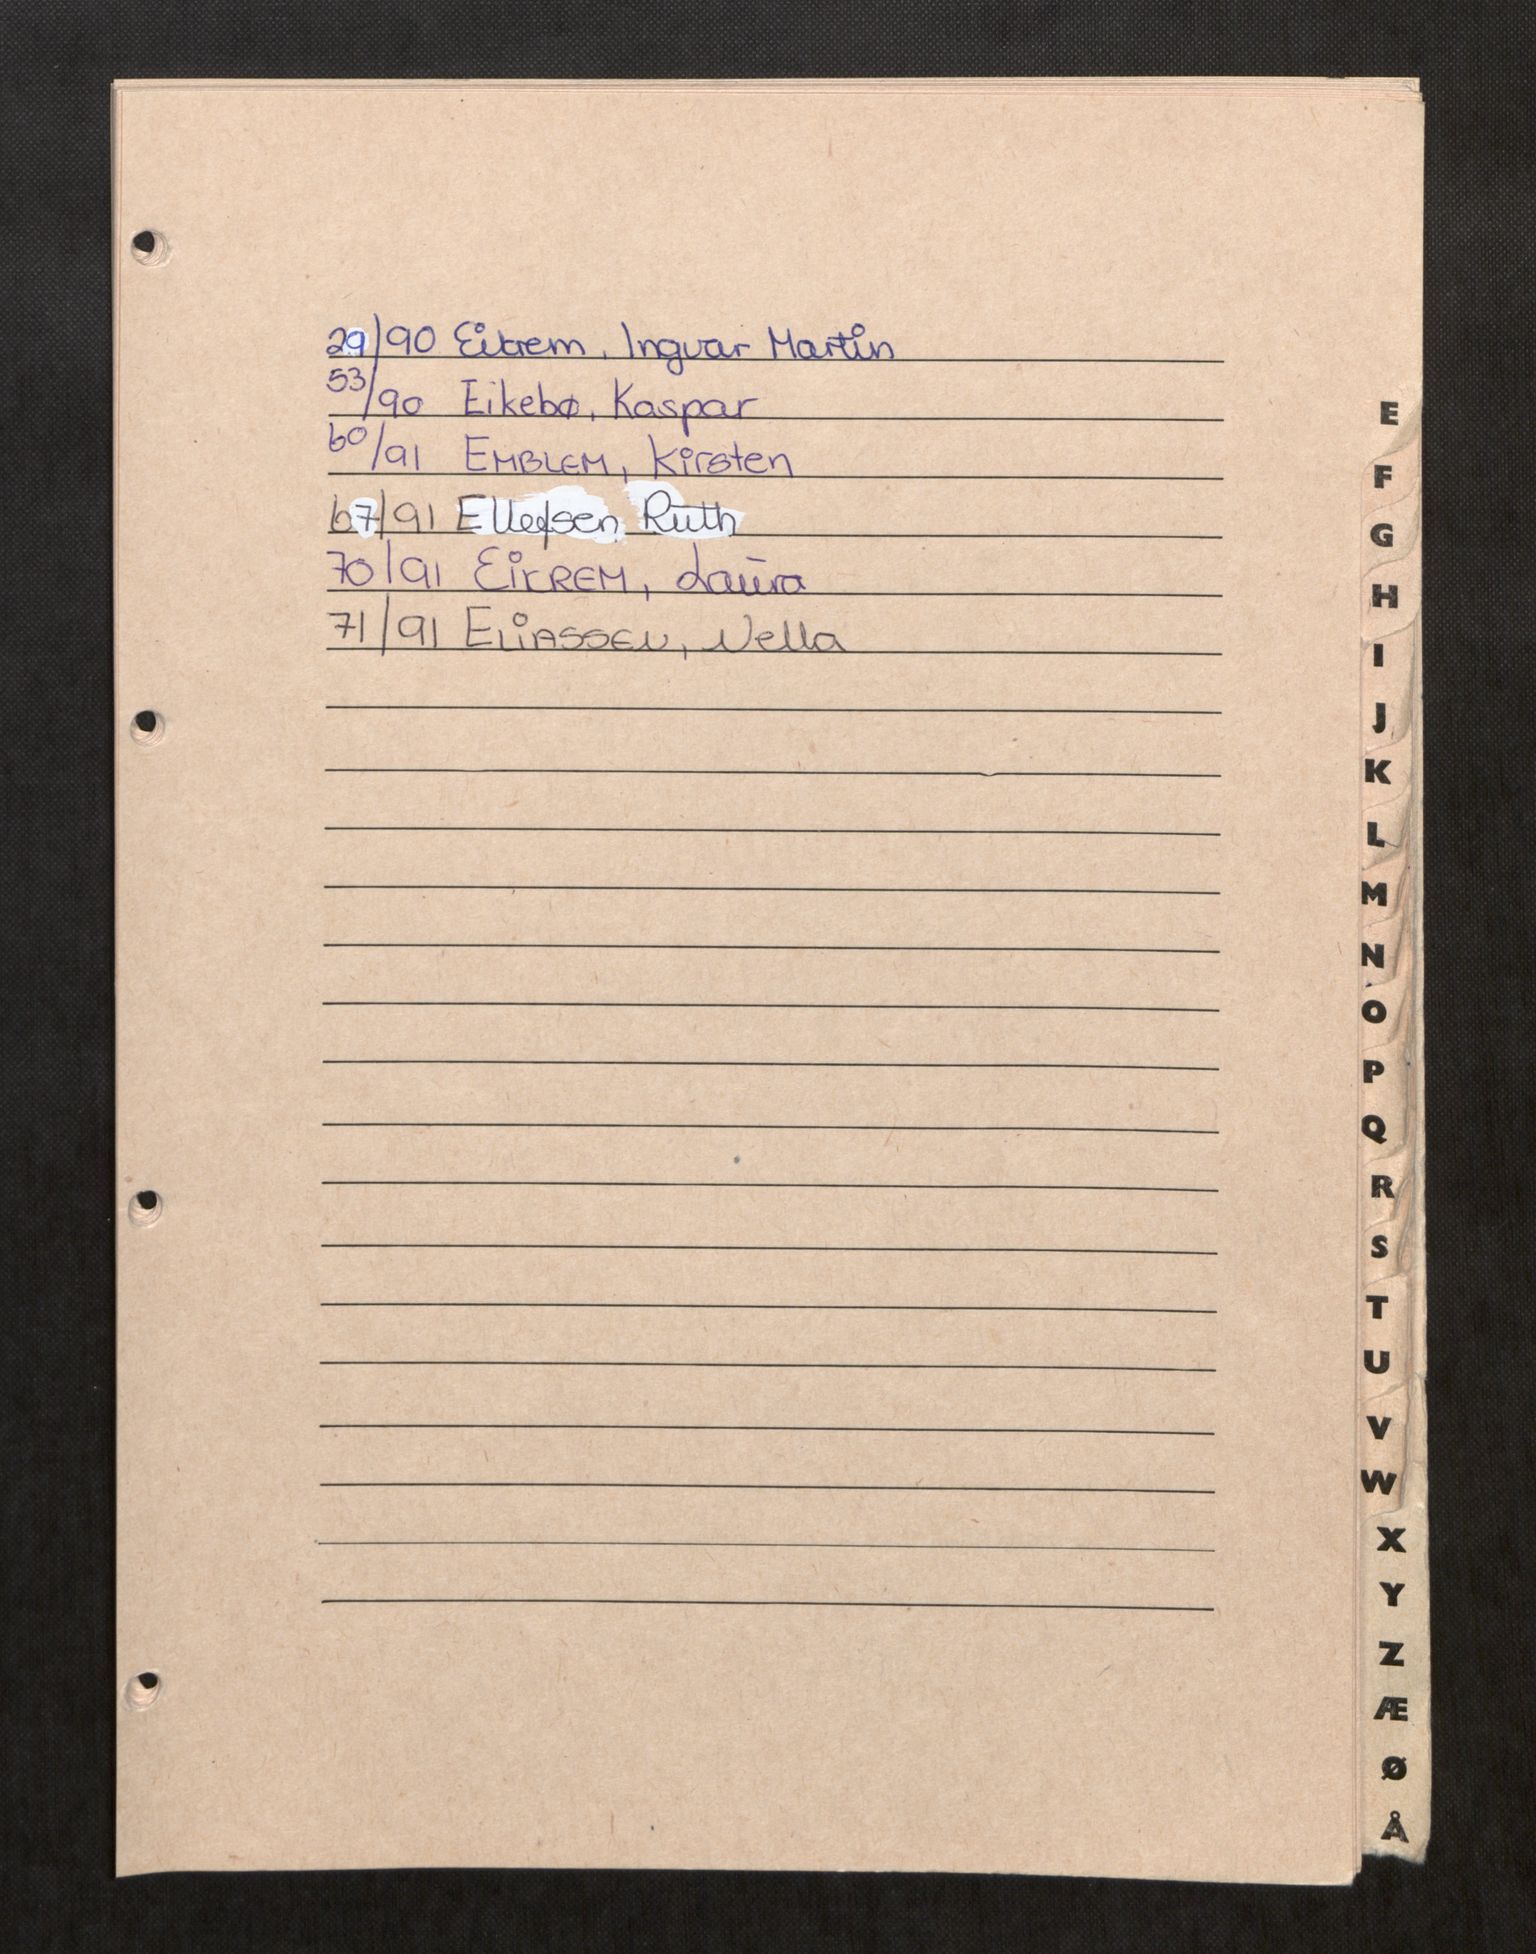 29/90 Eikrem, Ingvar Martin
53/90 Eikebø, Kaspar
60/91 EMBLEM, Kirsten
67/91 Ellefsen, Ruth
70/91 EiKREM, Laura
71/91 ELiASSEN, Nella
E
F
G
H
I
J
K
L
M
N
O
P
Q
R
S
T
U
V
W
X
Y
Z
Æ
Ø
Å